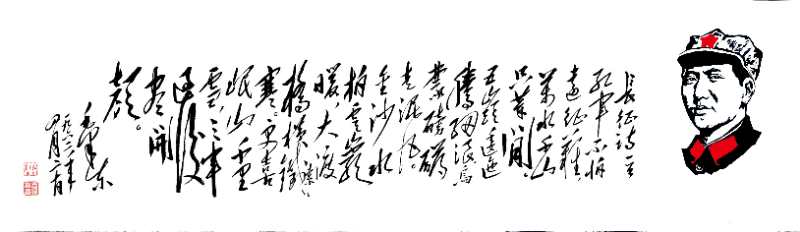 长征诗一首
红军不怕
远征难，
万水千山
只等闲。
五岭逶迤
腾细浪，乌
蒙磅礴
走泥丸。
金沙水
拍云崖
暖，大渡
桥横铁索
寒。更喜
岷山千里
雪，三军
过后
尽开
颜。
毛泽东
一九六二年
四月二十日